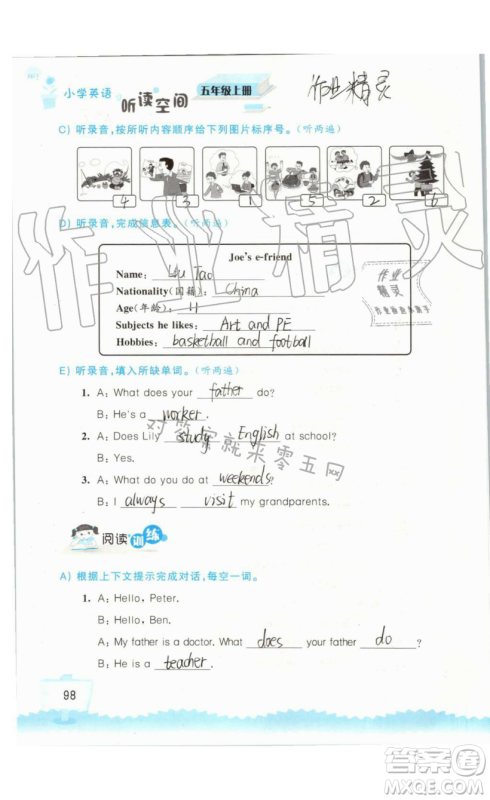 小学英语
听读空间
五年级上册
作业精灵
C) 听录音,按所听内容顺序给下列图片标序号。(听两遍)
4 3 1 5 2 6
D) 听录音,完成信息表。(听两遍)
Joe's e-friend
Name: Liu Tao
Nationality(国籍): China
Age(年龄): 11
Subjects he likes: Art and PE
Hobbies: basketball and football
作业
精灵
E) 听录音,填入所缺单词。(听两遍)
1. A: What does your father do?
B: He's a worker.
2. A: Does Lily study English at school?
B: Yes.
3. A: What do you do at weekends?
B: I always visit my grandparents.
作业精灵
对答案就来零五网
阅读训练
A) 根据上下文提示完成对话,每空一词。
1. A: Hello, Peter.
B: Hello, Ben.
A: My father is a doctor. What does your father do?
B: He is a teacher.
98
答案圈
MXQE.COM